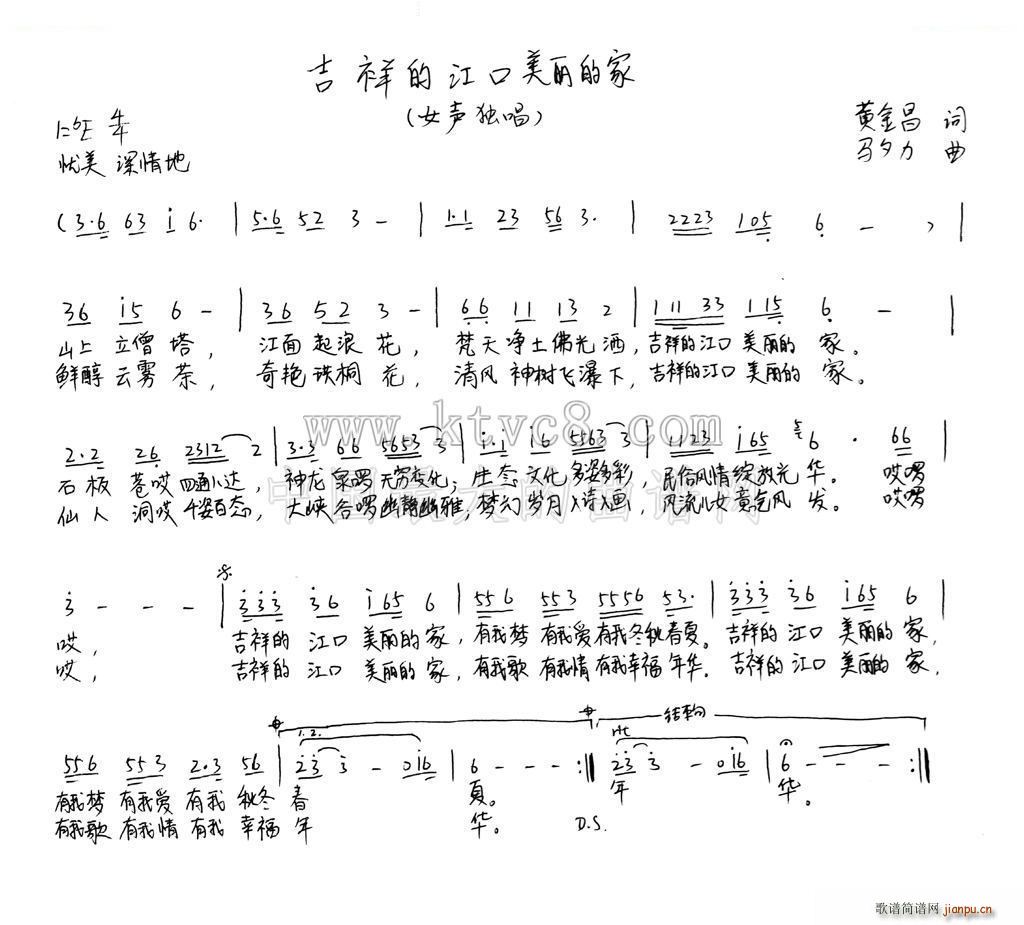 吉祥的江口美丽的家
(女声独唱)
1=♭E 4/4
黄金昌 词
优美 深情地
马夕力 曲
(3·6 63 i 6· | 5·6 52 3 - | 1·1 23 56 3· | 2223 105 6 - - ) |
36 i5 6 - | 36 52 3 - | 66 11 13 2 | 1 11 33 115 6 - |
山上 立僧塔, 江面起浪花, 梵天净土佛光洒, 吉祥的江口 美丽的 家。
鲜醇 云雾茶, 奇艳珙桐花, 清风神树飞瀑下, 吉祥的江口 美丽的 家。
www.ktvc8.com
2·2 26 2312 2 | 3·3 66 5653 3 | i·i i6 5563 3 | 1123 i65 6 · 66
石板 苍哎 四通八达, 神龙泉啰 无穷变化; 生态文化多姿多彩, 民俗风情绽放光华。 哎啰
仙人 洞哎 千姿百态, 大峡谷啰幽静幽雅; 梦幻岁月诗画, 风流儿女意气风发。 哎啰
3 - - - | 333 36 i65 6 | 556 553 5556 53· | 333 36 i65 6 |
哎, 吉祥的 江口 美丽的家, 有我梦 有我爱有我冬秋春夏。 吉祥的 江口 美丽的 家,
哎, 吉祥的 江口 美丽的家, 有我歌 有我情有我幸福 年华。 吉祥的 江口 美丽的 家,
结束句
1. 2.
556 553 2·3 56 | 23 3 - 016 | 6 - - - :‖ 23 3 - 016 | 6 - - - :‖
有我梦 有我爱 有我 秋冬 春 夏。 年 华。
有我歌 有我情 有我 幸福 年 华。 D.S.
歌谱简谱网
jianpu.cn